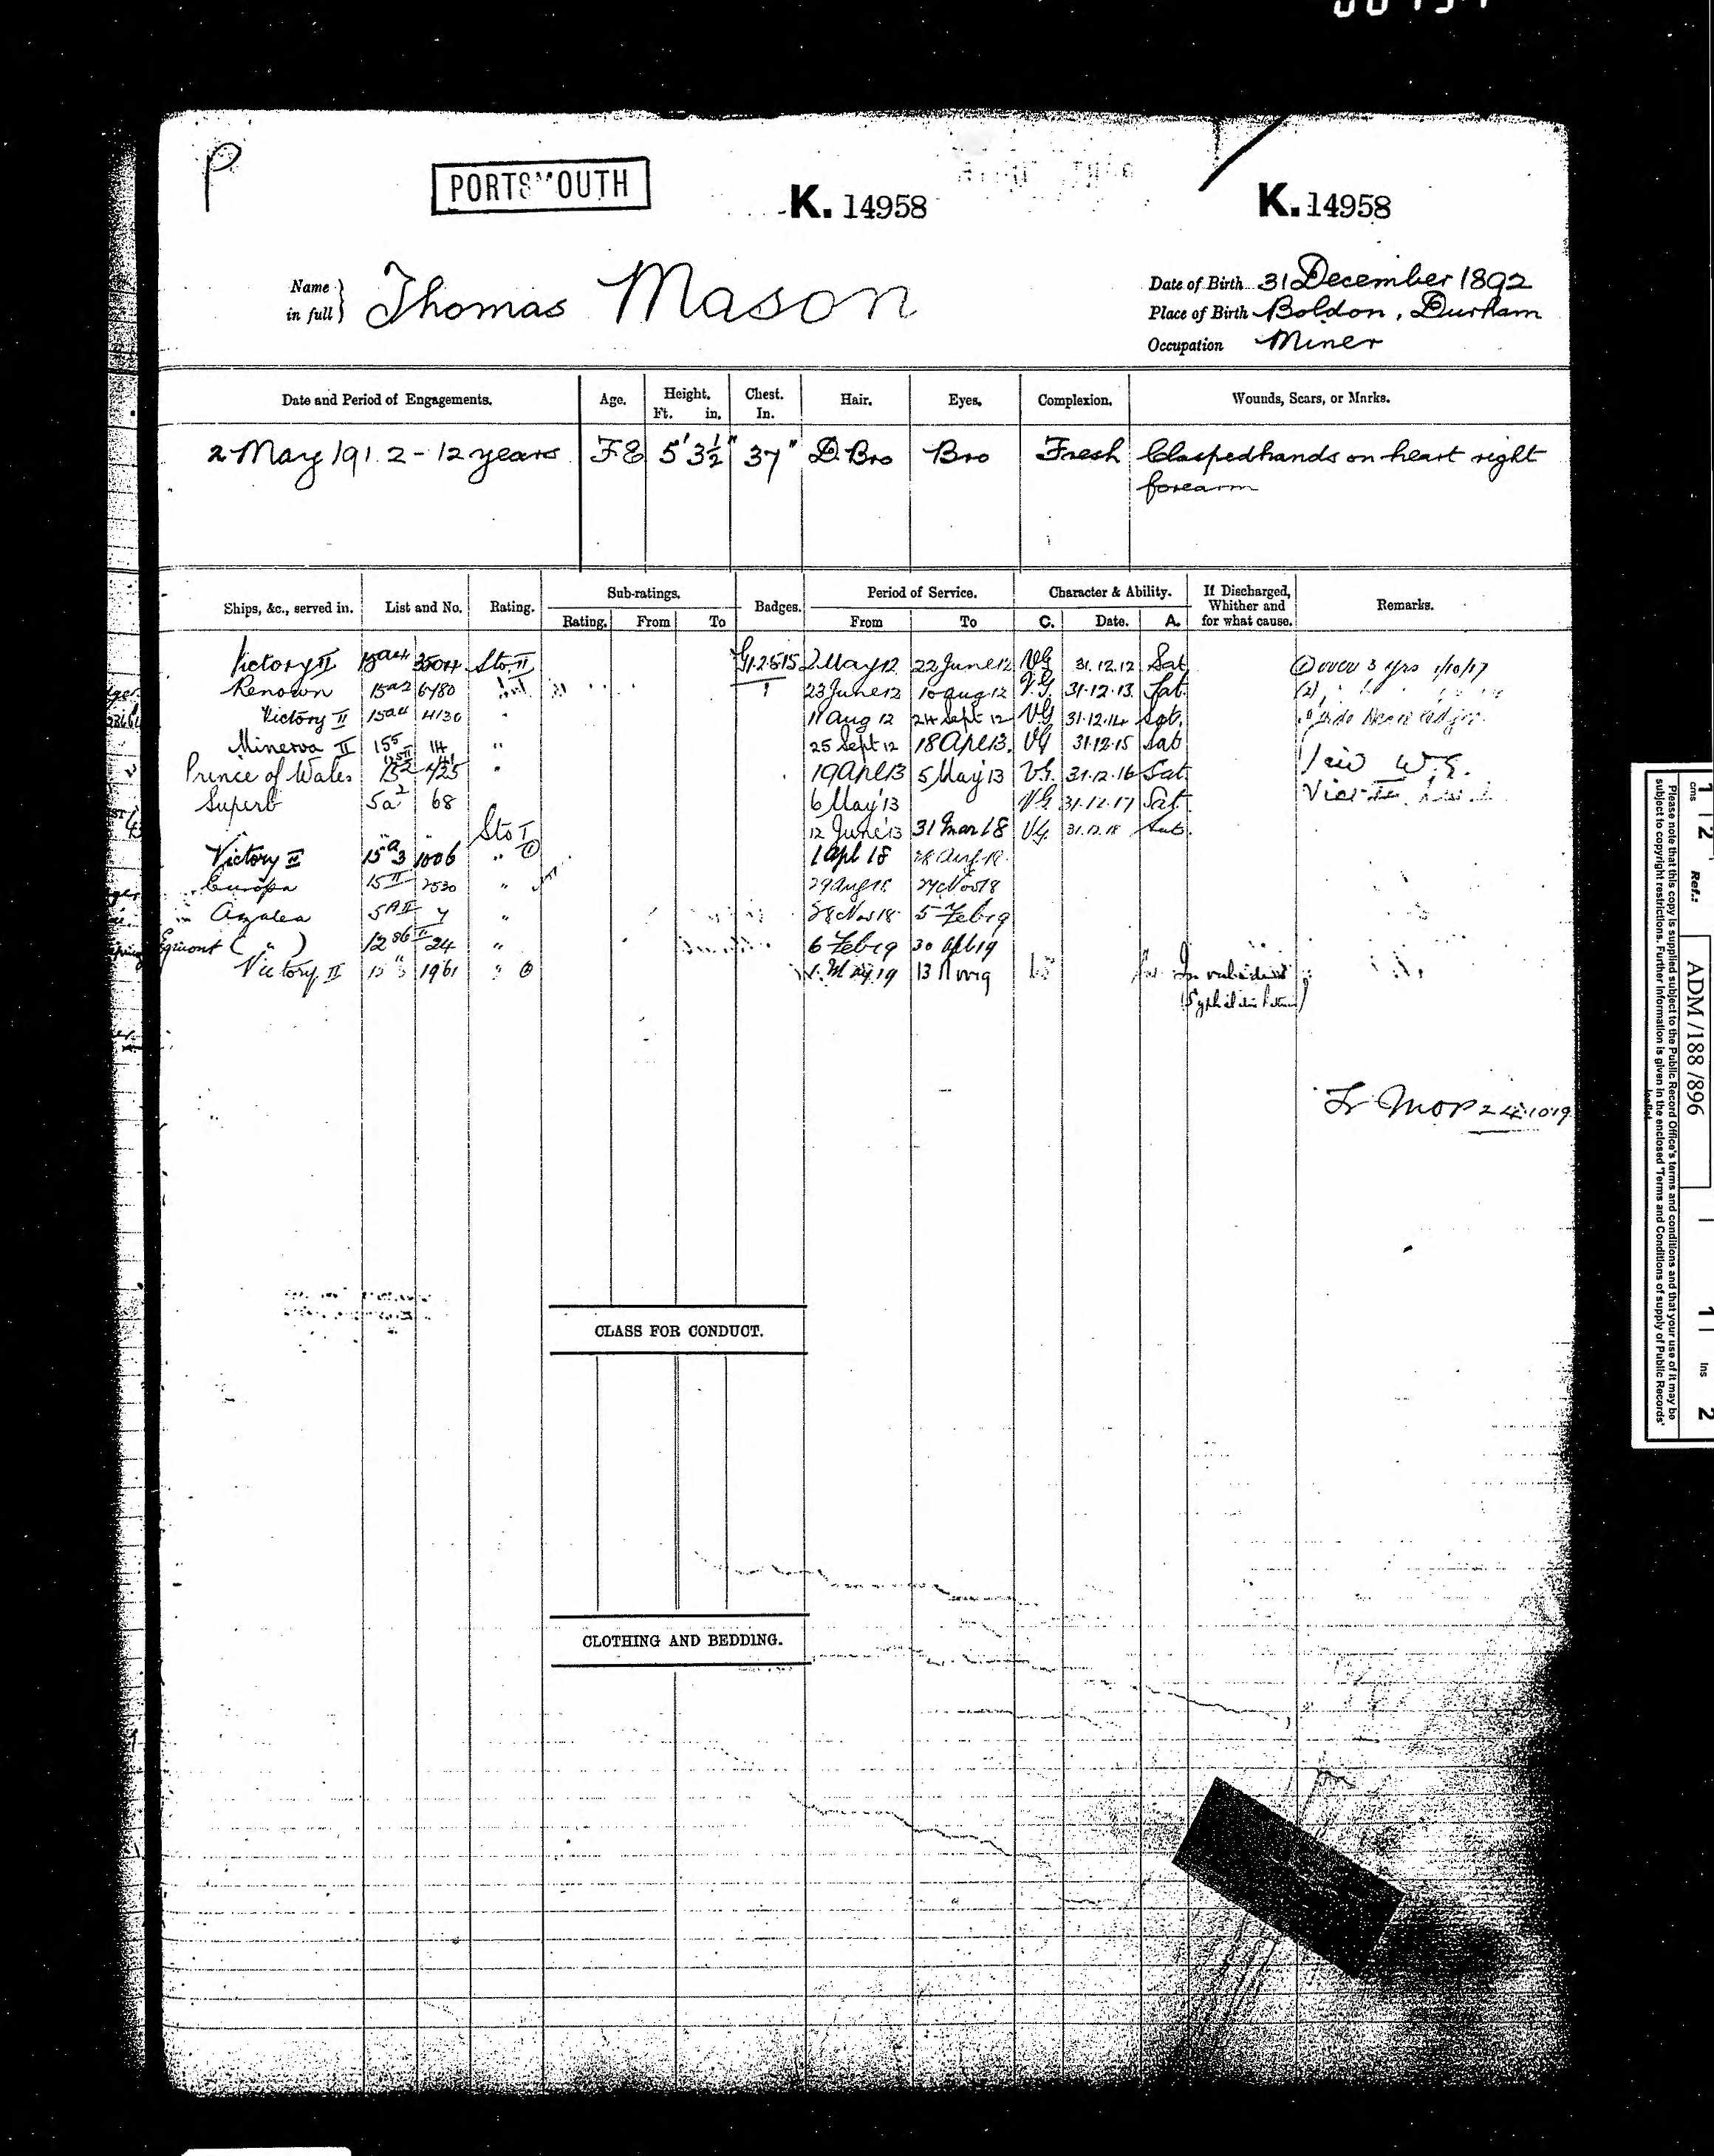 P
PORTSMOUTH
K. 14958
K. 14958
Name in full } Thomas Mason
Date of Birth 31 December 1892
Place of Birth Boldon, Durham
Occupation Miner
Date and Period of Engagements. Age. Height. Ft. in. Chest. In. Hair. Eyes. Complexion. Wounds, Scars, or Marks.
2 May 1912 - 12 years F E 5' 3½" 37" D. Bro Bro Fresh Clasped hands on heart right
forearm
Ships, &c., served in. List and No. Rating. Sub-ratings. Rating. From To Badges. Period of Service. From To Character & Ability. C. Date. A. If Discharged, Whither and for what cause. Remarks.
Victory II 15a4 3504 Sto. II G1.2.5.15 2 May 12 22 June 12 VG 31.12.12 Sat
Renown 15a2 6480 23 June 12 10 Aug 12 V.G. 31.12.13 Sat
Victory II 15a4 4130 " 11 Aug 12 24 Sept 12 VG 31.12.14 Sat.
Minerva II 155 14 " 25 Sept 12 18 Apl 13. VG 31.12.15 Sat
Prince of Wales 152 425 " 19 Apl 13 5 May 13 V.G. 31.12.16 Sat
Superb 5a2 68 6 May 13 VG 31.12.17 Sat.
Sto I 12 June 13 31 Mar 18 VG. 31.12.18 Sat.
Victory II 15a3 1006 " 1 Apl 18 28 Aug 18
Europa 15II 2530 " 29 Aug 18 27 Nov 18
Azalea 5AII 4 " 28 Nov 18 5 Feb 19
Egmont ( " ) 24 " 6 Feb 19 30 Apl 19
Victory II 1961 " 1 May 19 13 Nov 19 Invalided
3 yrs 1/10/17
24.10.19
CLASS FOR CONDUCT.
CLOTHING AND BEDDING.
1 2
cms
Ref.:
ADM /188 /896
1 Ins 2
Please note that this copy is supplied subject to the Public Record Office's terms and conditions and that your use of it may be
subject to copyright restrictions. Further information is given in the enclosed 'Terms and Conditions of supply of Public Records'
leaflet